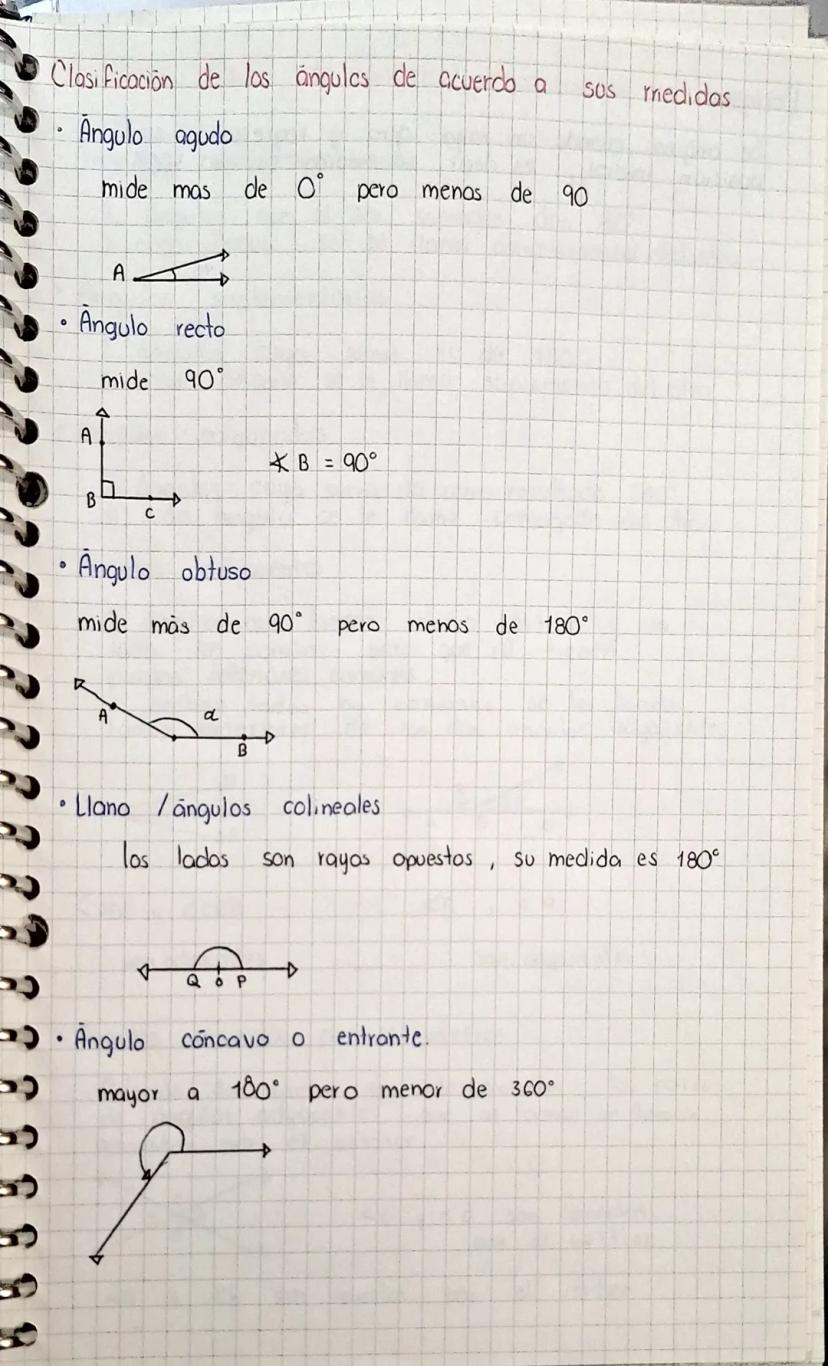 Clasificación de los ángulos de acuerdo a sus medidas
· Ángulo agudo
mide mas de 0° pero menos de 90
A
· Ángulo recto
mide 90°
A
∡ B = 90°
B
C
· Ángulo obtuso
mide más de 90° pero menos de 180°
A α
B
· Llano / ángulos colineales
los lados son rayos opuestos, su medida es 180°
Q O P
· Ángulo cóncavo o entrante.
mayor a 180° pero menor de 360°